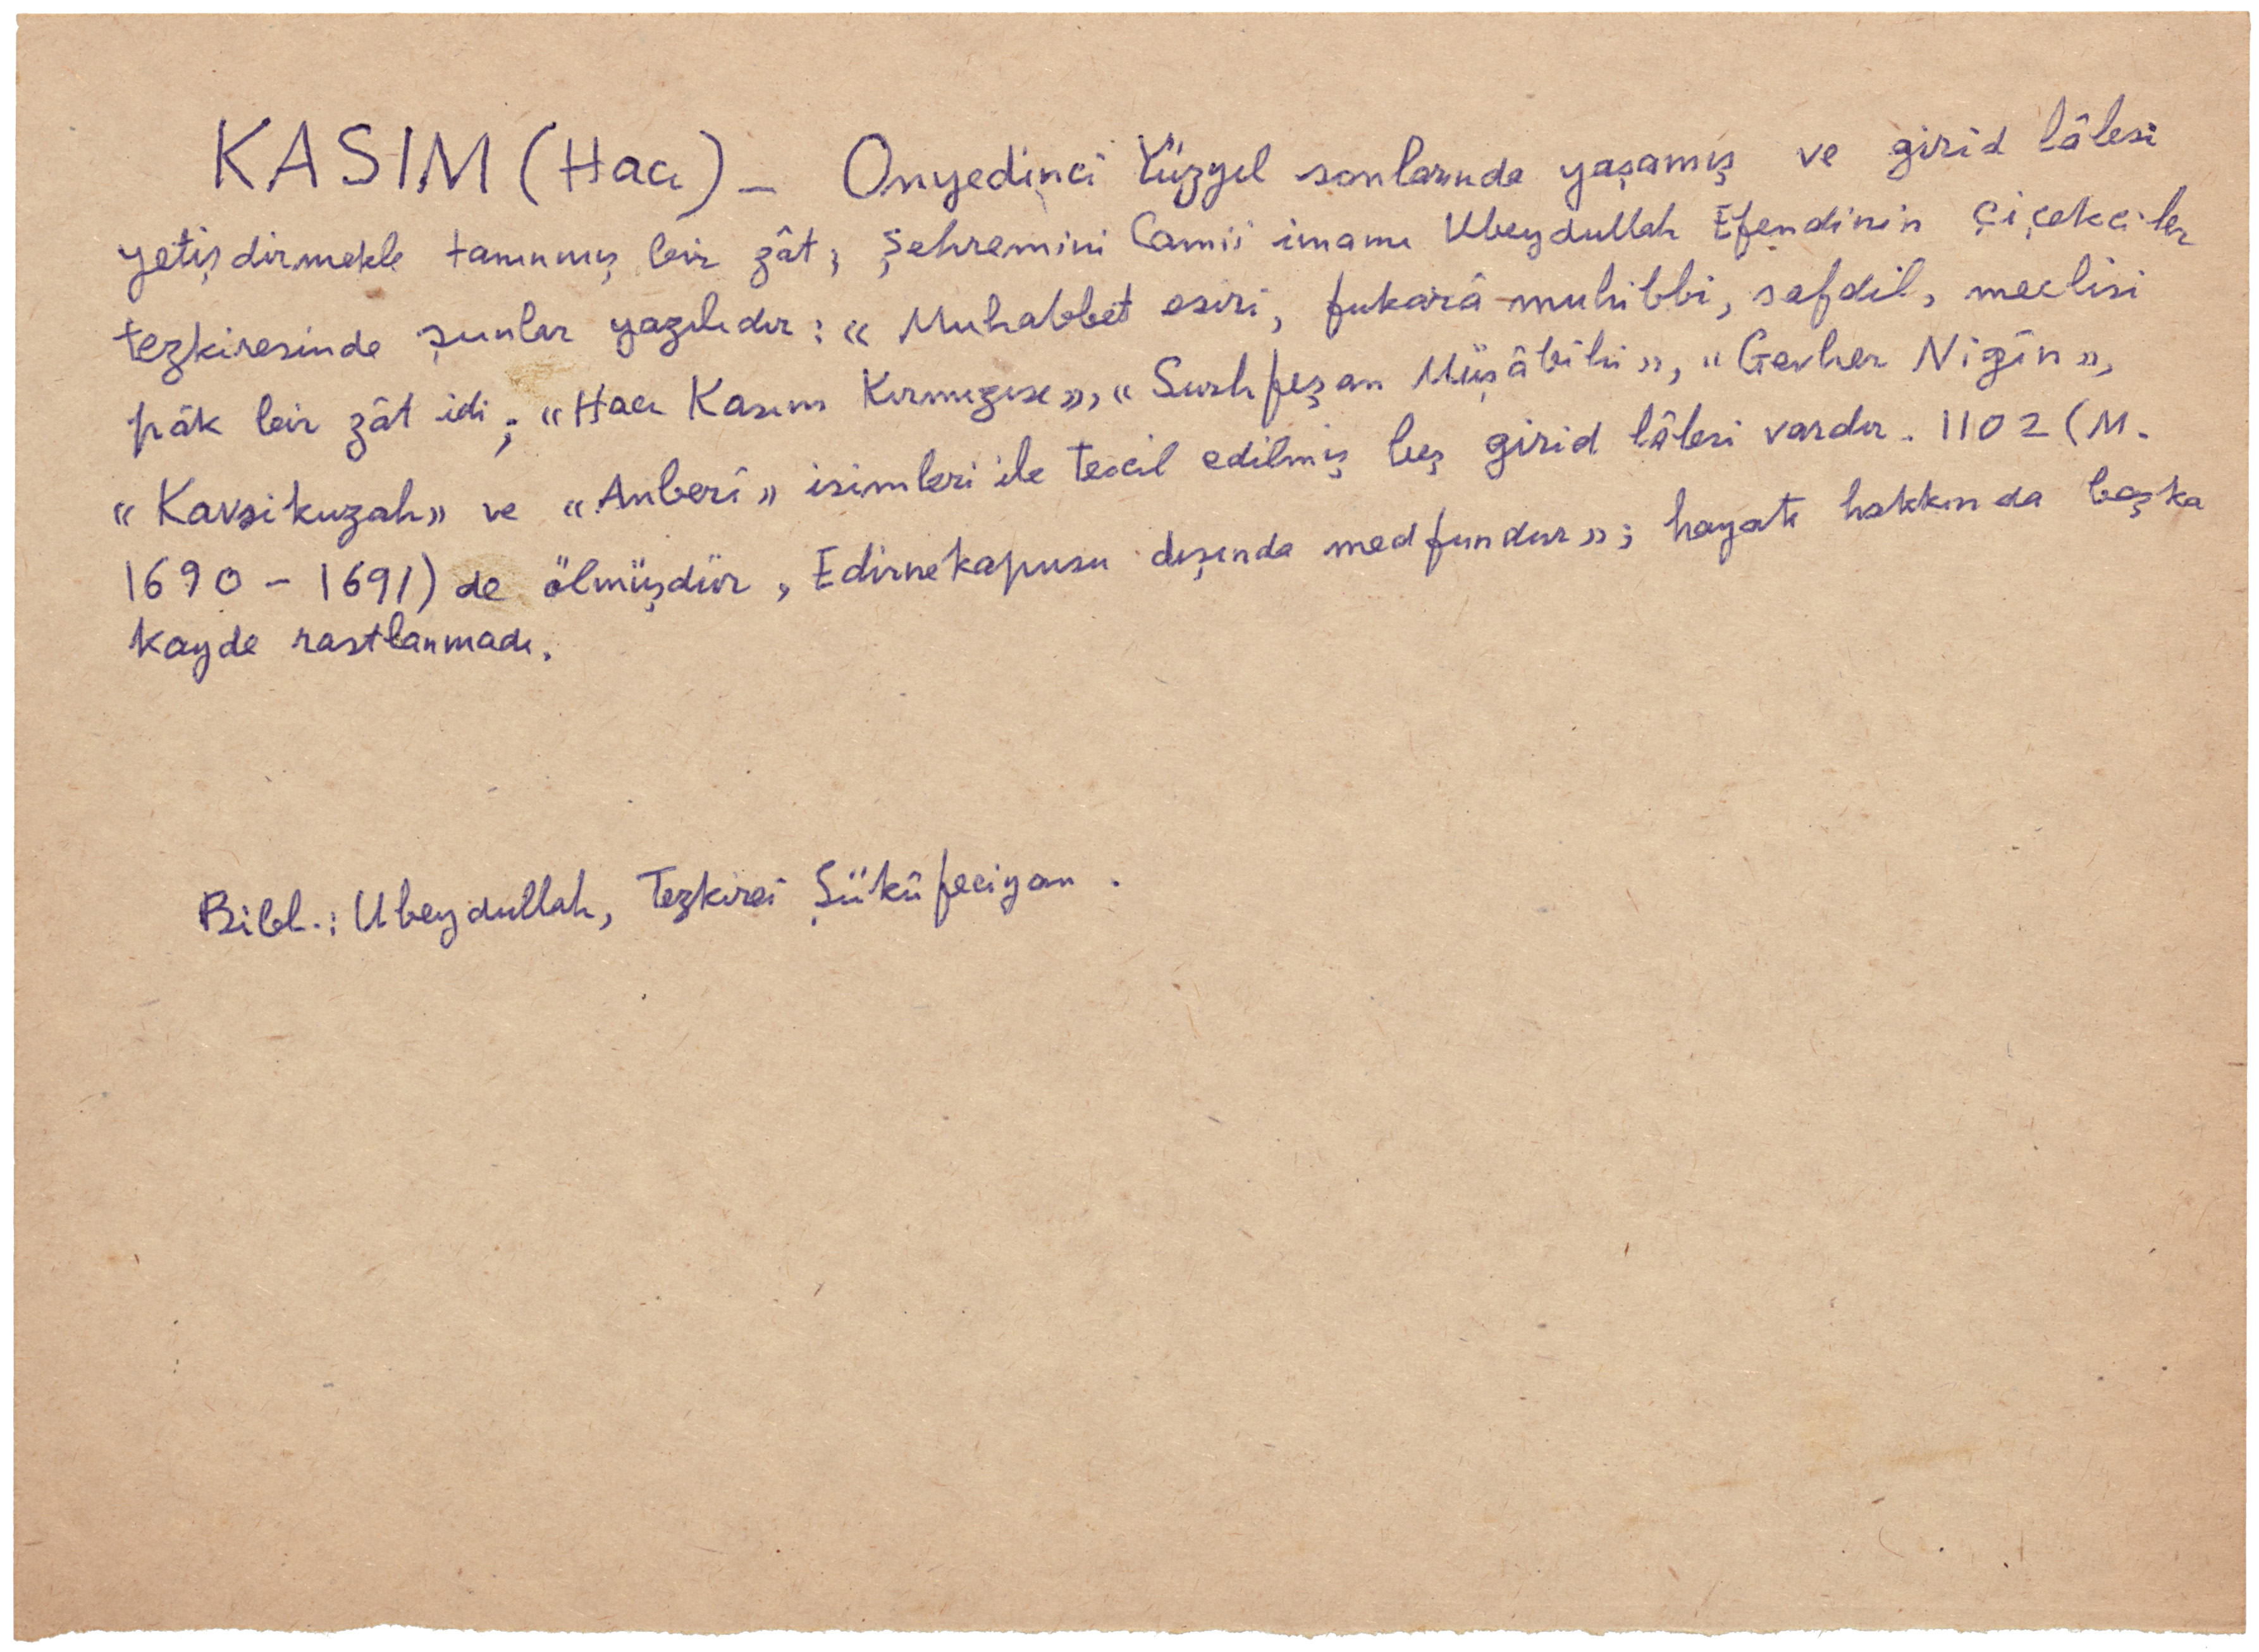 KASIM (Hacı) — Onyedinci Yüzyıl sonlarında yaşamış ve girid lâlesi
yetişdirmekle tanınmış bir zât; Şehremini Camii imamı Ubeydullah Efendinin Çiçekciler
tezkiresinde şunlar yazılıdır: « Muhabbet esiri, fukarâ muhibbi, safdil, meclisi
pâk bir zât idi; «Hacı Kasım Kırmızısı», « Surhfeşan Müşâbihi », « Gevher Nigîn »,
« Kavsikuzah» ve « Anberî » isimleri ile tescil edilmiş beş girid lâlesi vardır. 1102 (M.
1690 - 1691) de ölmüşdür, Edirnekapusu dışında medfundur »; hayatı hakkında başka
kayde rastlanmadı.
Bibl.: Ubeydullah, Tezkirei Şükûfeciyan.